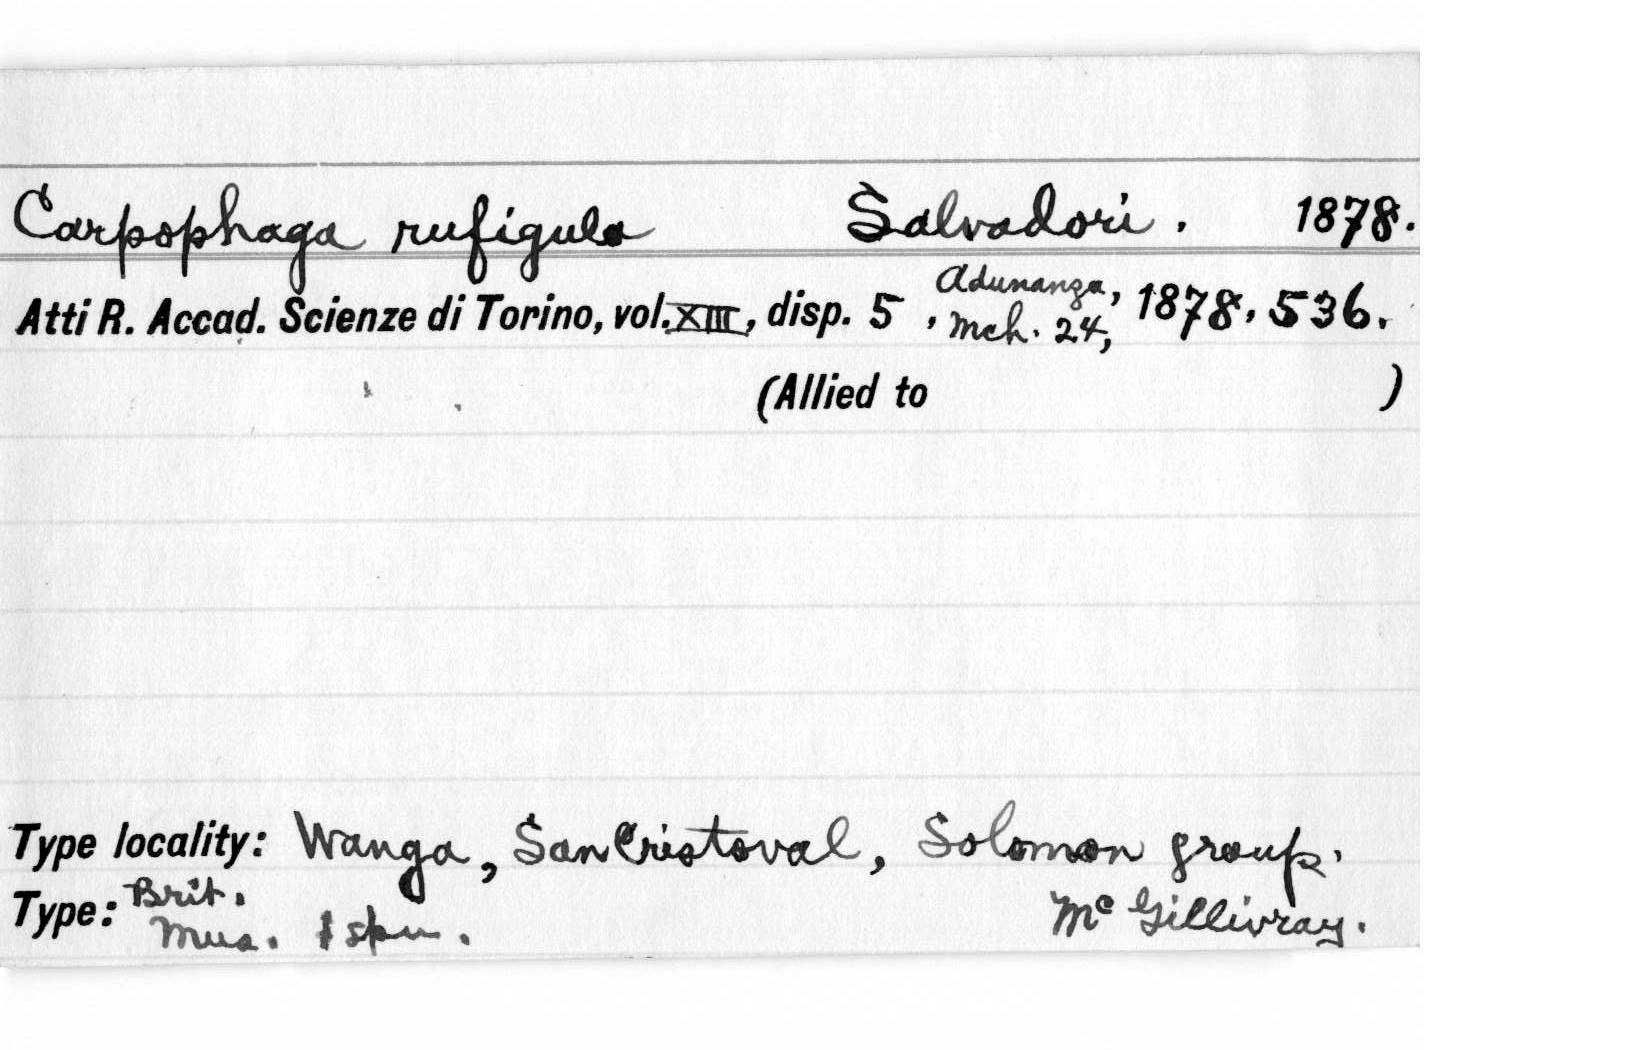 Carpophaga rufigula Salvadori. 1878.
Atti R. Accad. Scienze di Torino, vol. XIII, disp. 5, Adunanza, Mch. 24, 1878, 536.
(Allied to )
Type locality: Wanga, San Cristoval, Solomon group.
Type: Brit. Mus. 1 spm. McGillivray.